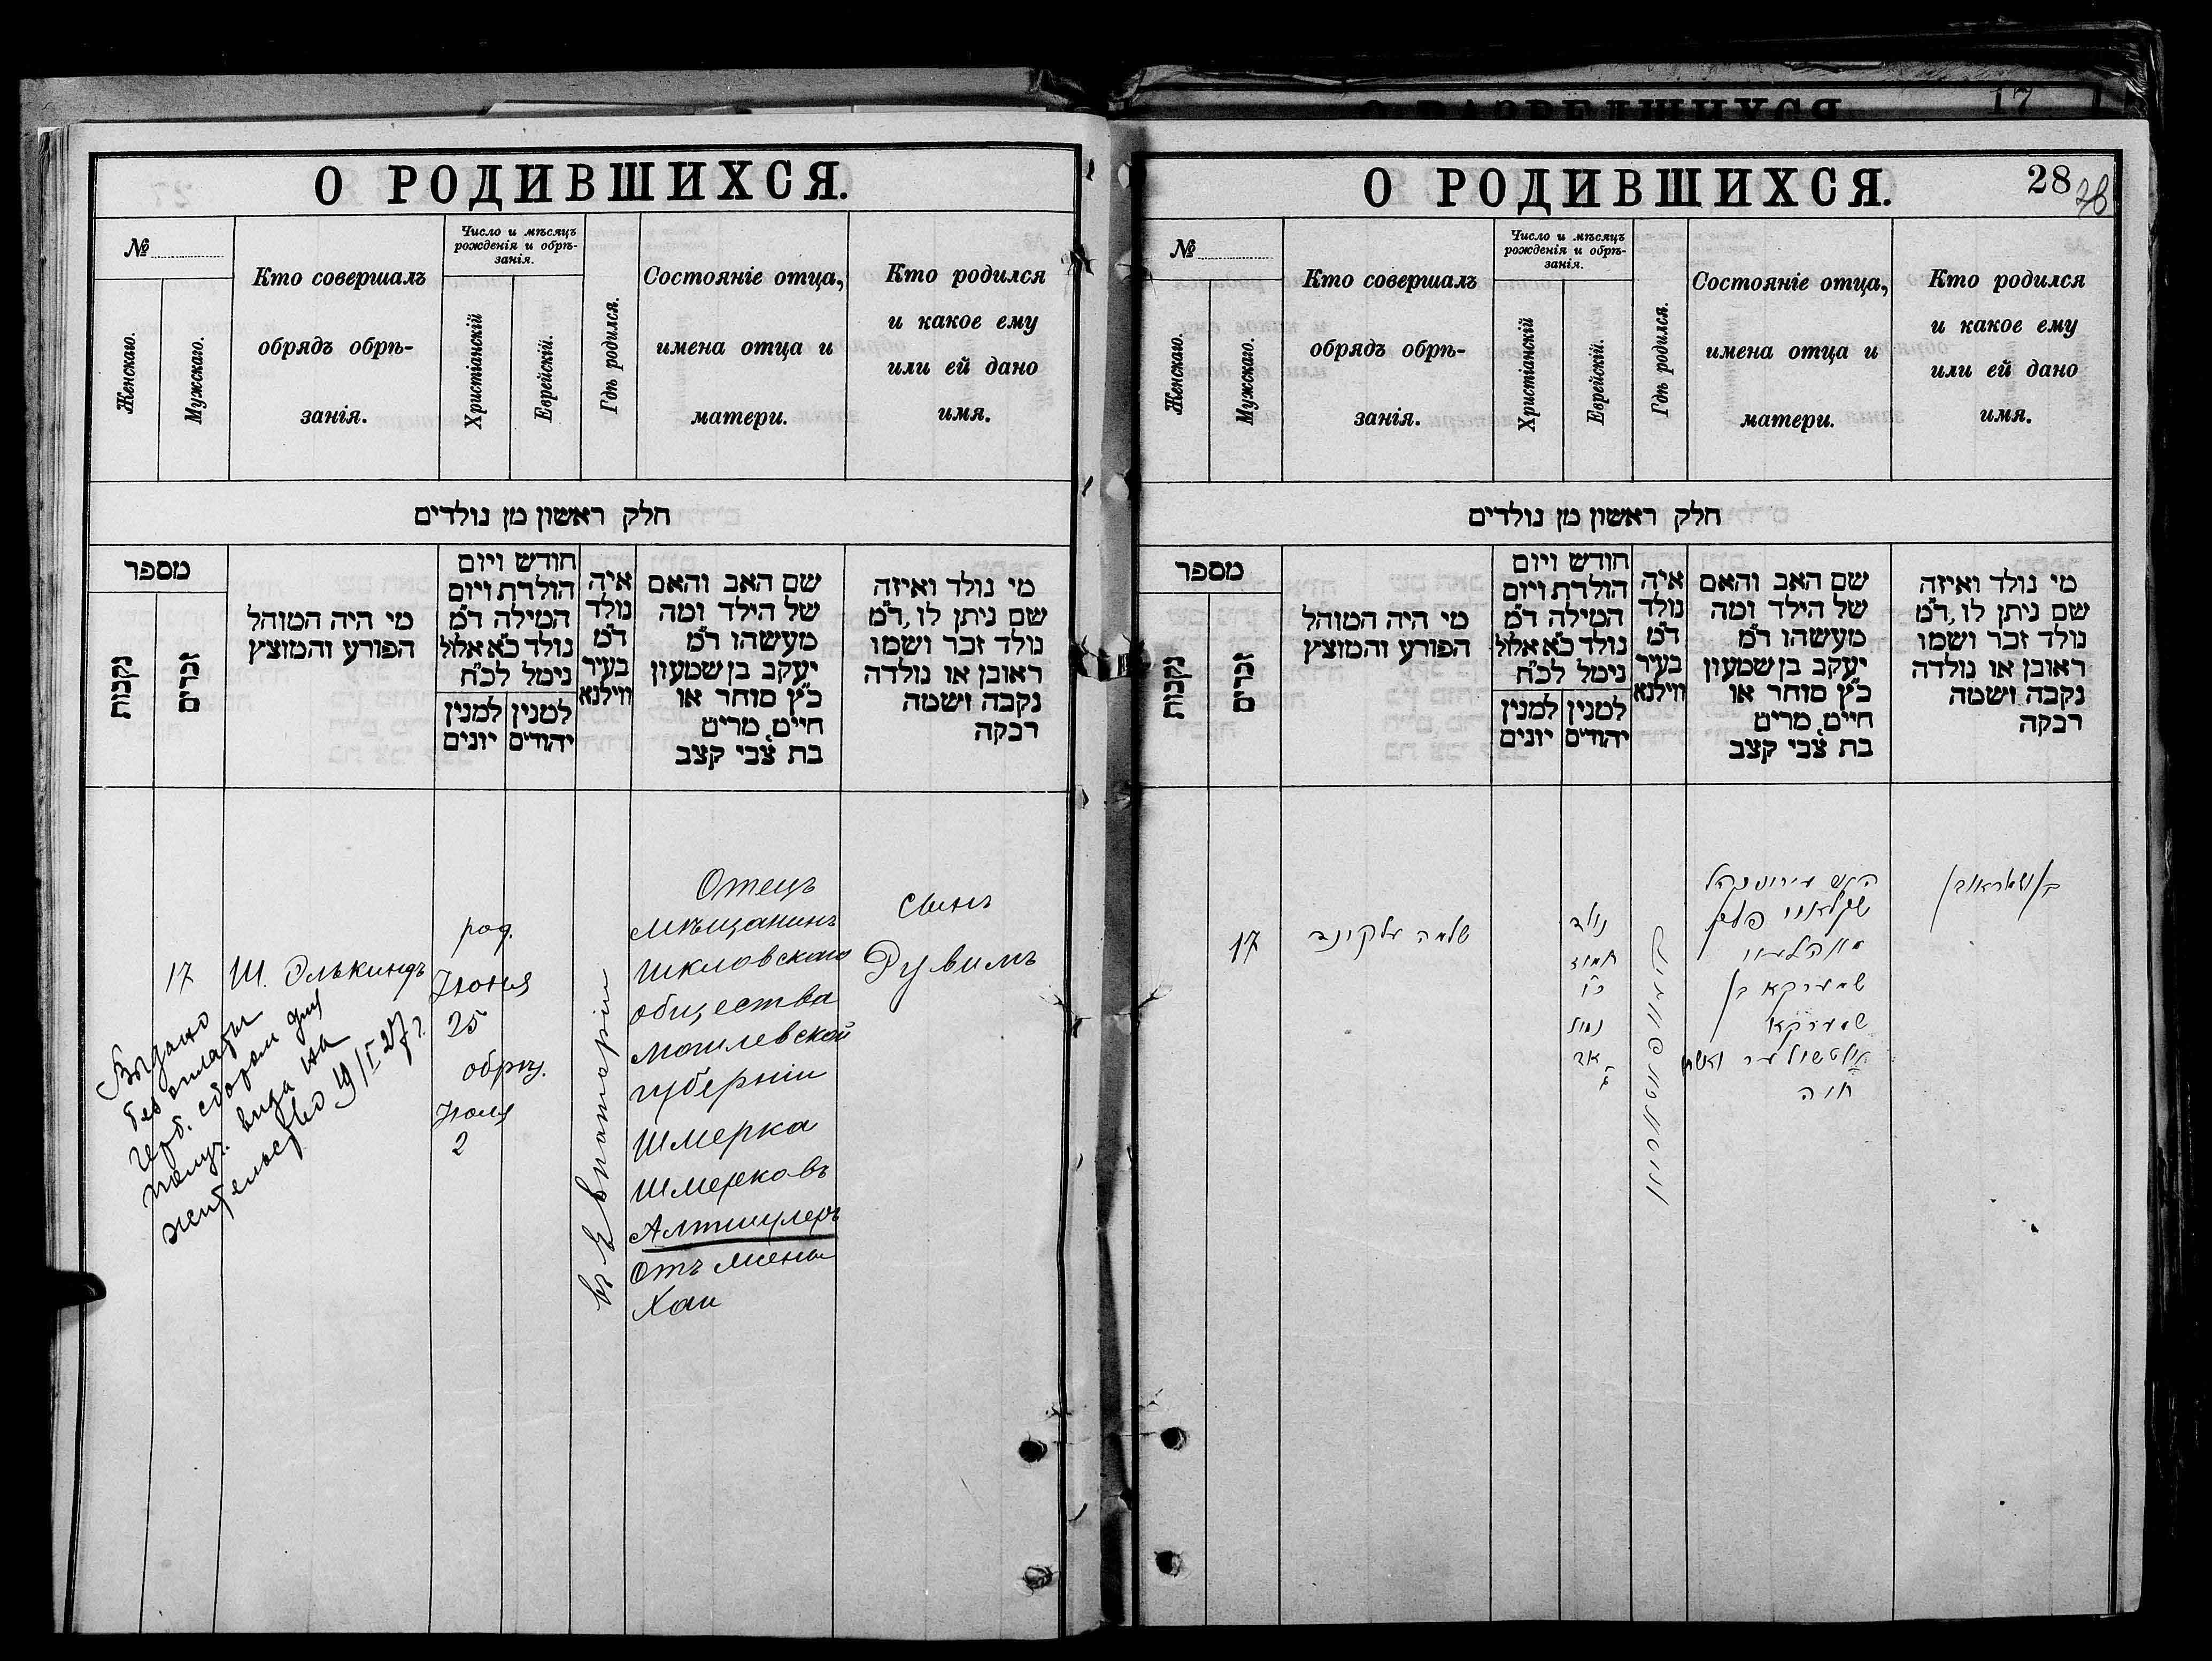 О РОДИВШИХСЯ.
№
Женскаго.
Мужскаго.
Кто совершалъ
обрядъ обрѣ-
занія.
Число и мѣсяцъ
рожденія и обрѣ-
занія.
Христіанскій
Еврейскій.
Гдѣ родился.
Состояніе отца,
имена отца и
матери.
Кто родился
и какое ему
или ей дано
имя.
חלק ראשון מן נולדים
מספר
נקבות
זכרים
מי היה המוהל
הפורע והמוצץ
חודש ויום
הולדת ויום
המילה ד״מ
נולד כ״א אלול
נימל לכ״ח
למנין יהודים
למנין יונים
איה
נולד
ד״מ
בעיר
ווילנא
שם האב והאם
של הילד ומה
מעשהו ד״מ
יעקב בן שמעון
כ״ץ סוחר או
חיים, מרים
בת צבי קצב
מי נולד ואיזה
שם ניתן לו, ד״מ
נולד זכר ושמו
ראובן או נולדה
נקבה ושמה
רבקה
17
Ш. Элькиндъ
род.
Іюня
25
обрѣз.
Іюля
2
въ Евпаторіи
Отецъ
мѣщанинъ
Шкловскаго
общества
Могилевской
губерніи
Шмерка
Шмерковъ
Алтшулеръ
отъ жены
Хаи
сынъ
Рувимъ
Выдано
без оплаты
герб. сбором для
получ. вида на
жительство 19/I 27 г.
О РОДИВШИХСЯ.
28
28
№
Женскаго.
Мужскаго.
Кто совершалъ
обрядъ обрѣ-
занія.
Число и мѣсяцъ
рожденія и обрѣ-
занія.
Христіанскій
Еврейскій.
Гдѣ родился.
Состояніе отца,
имена отца и
матери.
Кто родился
и какое ему
или ей дано
имя.
חלק ראשון מן נולדים
מספר
נקבות
זכרים
מי היה המוהל
הפורע והמוצץ
חודש ויום
הולדת ויום
המילה ד״מ
נולד כ״א אלול
נימל לכ״ח
למנין יהודים
למנין יונים
איה
נולד
ד״מ
בעיר
ווילנא
שם האב והאם
של הילד ומה
מעשהו ד״מ
יעקב בן שמעון
כ״ץ סוחר או
חיים, מרים
בת צבי קצב
מי נולד ואיזה
שם ניתן לו, ד״מ
נולד זכר ושמו
ראובן או נולדה
נקבה ושמה
רבקה
17
שלמה עלקינד
נולד
תמוז
נמול
שמערקא בן
שמערקא
אלטשולער ואשתו
חיה
О РАЗВЕДШИХСЯ
17